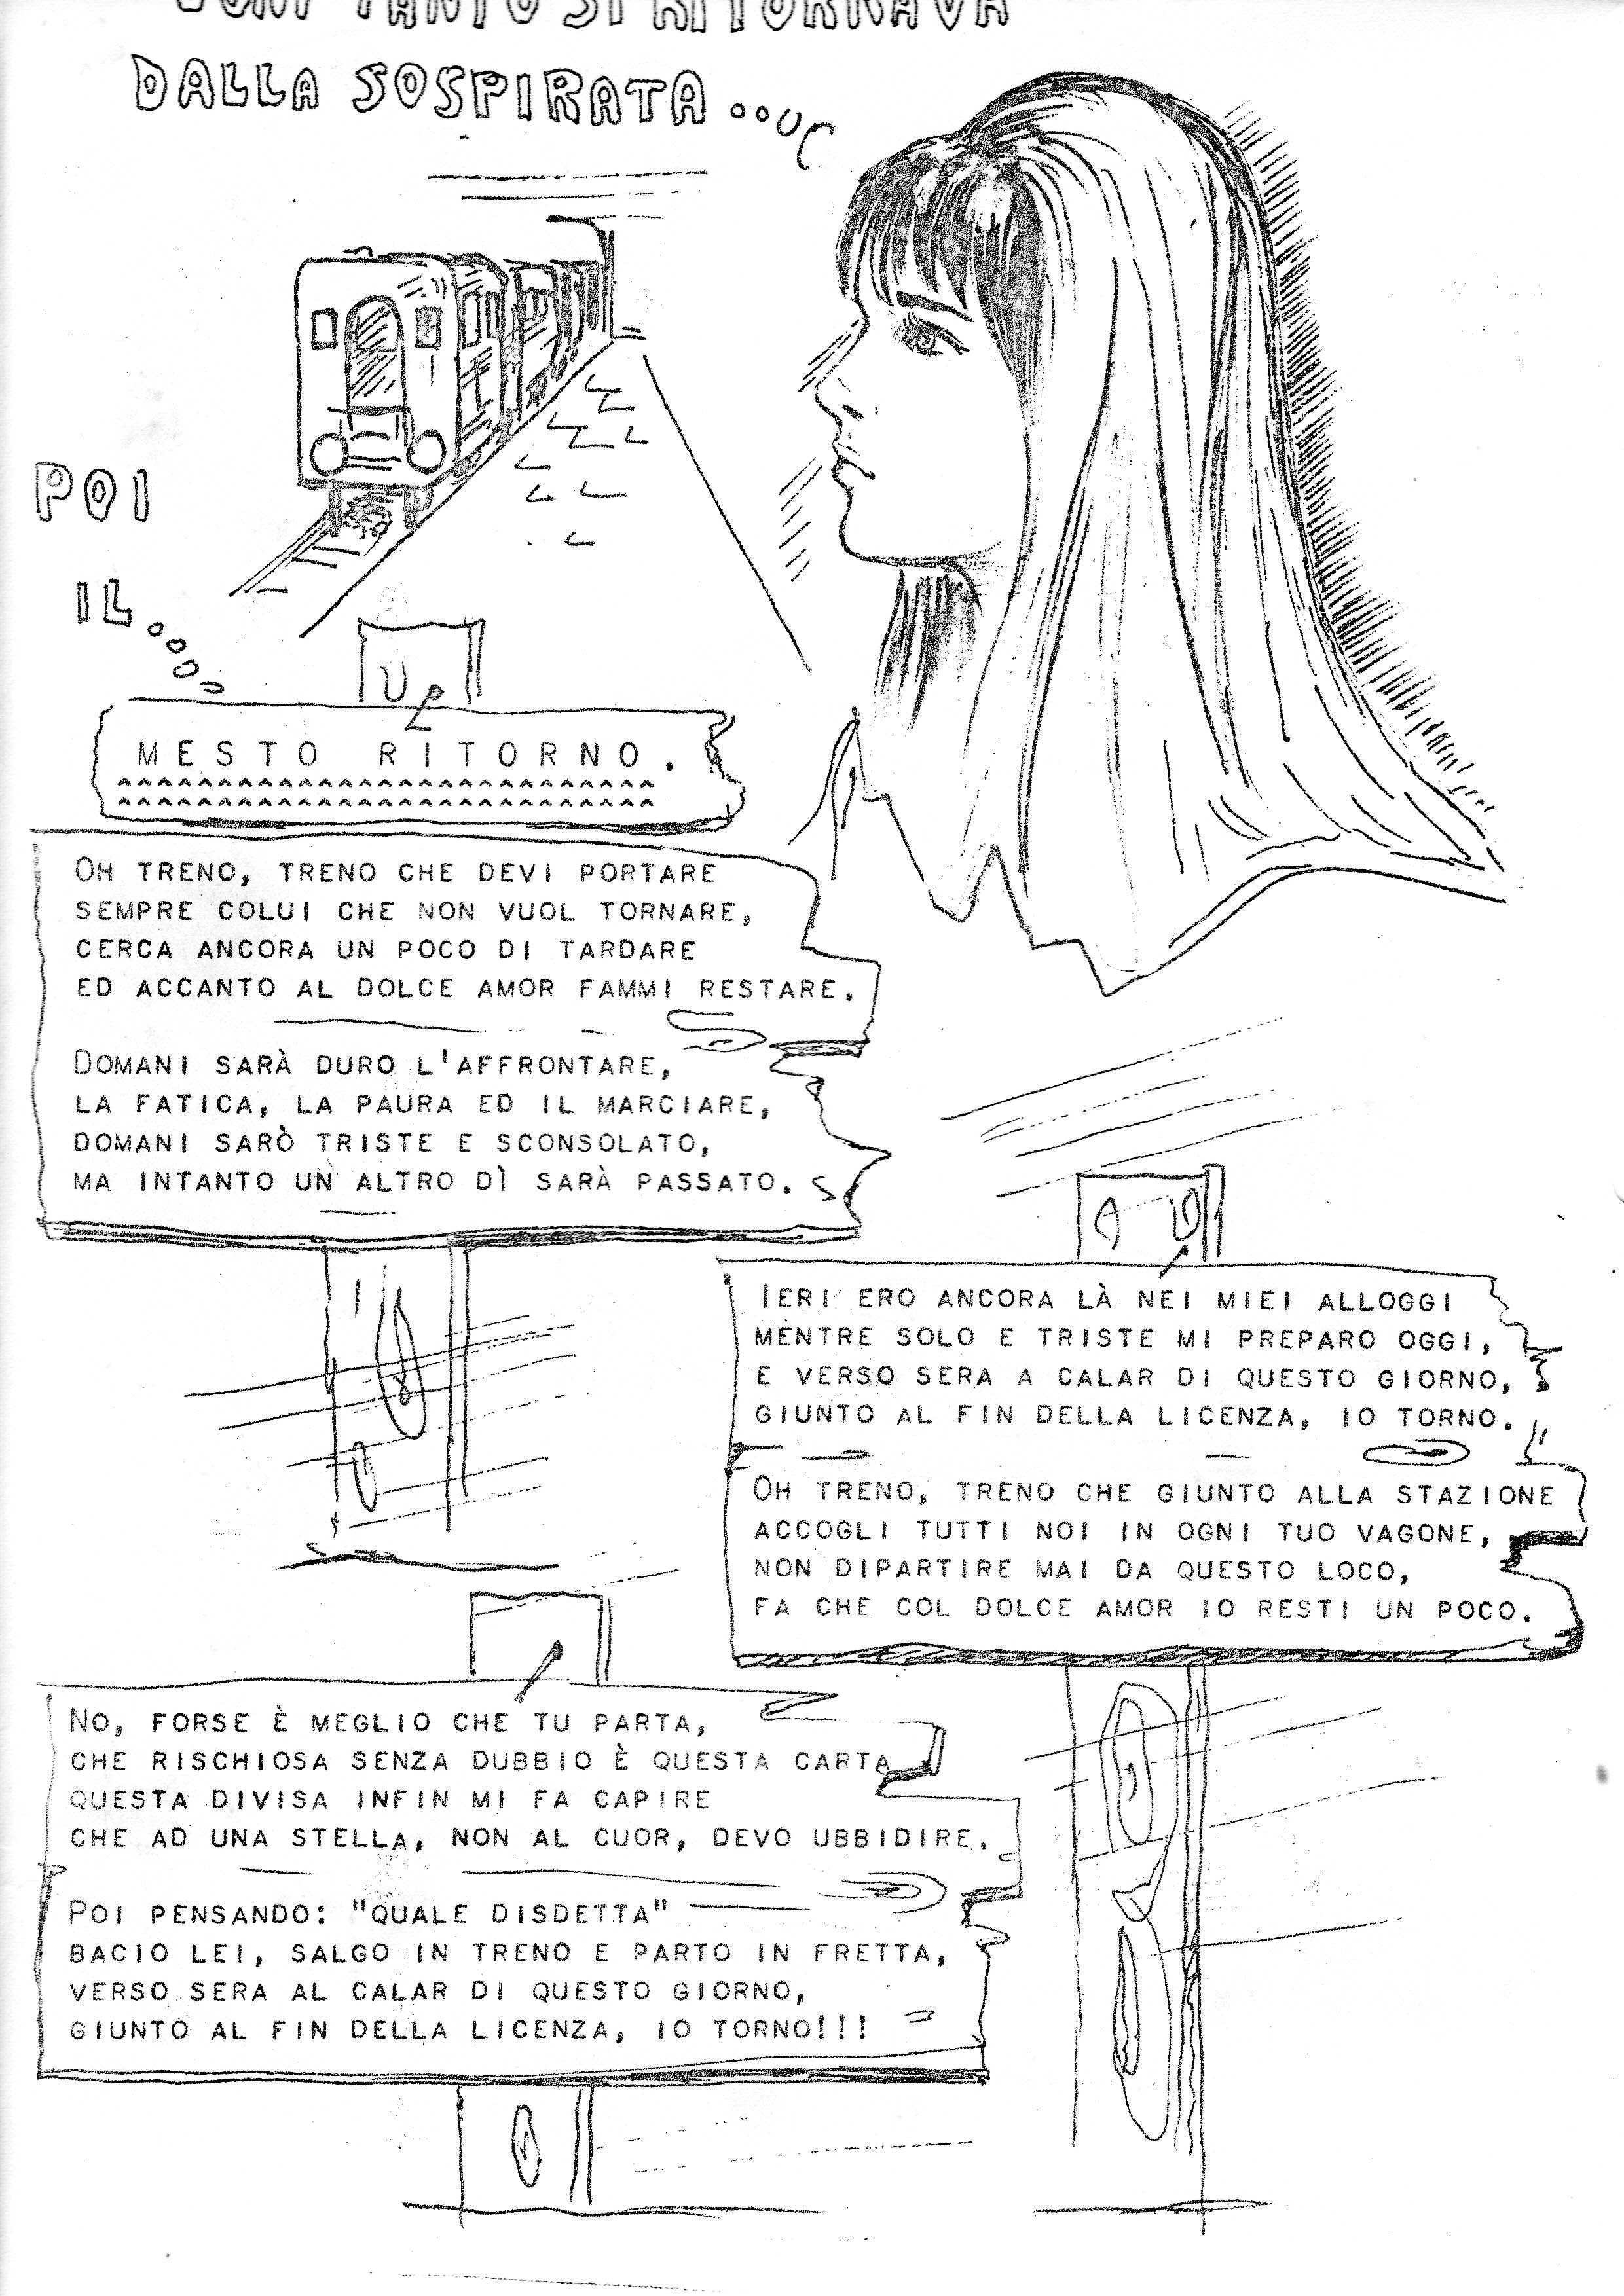 TANTO SI RITORNAVA
DALLA SOSPIRATA...
POI
IL...
MESTO RITORNO.
^^^^^^^^^^^^^^^^^^^^^^^^^^^
^^^^^^^^^^^^^^^^^^^^^^^^^^^
OH TRENO, TRENO CHE DEVI PORTARE
SEMPRE COLUI CHE NON VUOL TORNARE,
CERCA ANCORA UN POCO DI TARDARE
ED ACCANTO AL DOLCE AMOR FAMMI RESTARE.
DOMANI SARÀ DURO L'AFFRONTARE,
LA FATICA, LA PAURA ED IL MARCIARE,
DOMANI SARÒ TRISTE E SCONSOLATO,
MA INTANTO UN ALTRO DÌ SARÀ PASSATO.
IERI ERO ANCORA LÀ NEI MIEI ALLOGGI
MENTRE SOLO E TRISTE MI PREPARO OGGI,
E VERSO SERA A CALAR DI QUESTO GIORNO,
GIUNTO AL FIN DELLA LICENZA, IO TORNO.
OH TRENO, TRENO CHE GIUNTO ALLA STAZIONE
ACCOGLI TUTTI NOI IN OGNI TUO VAGONE,
NON DIPARTIRE MAI DA QUESTO LOCO,
FA CHE COL DOLCE AMOR IO RESTI UN POCO.
NO, FORSE È MEGLIO CHE TU PARTA,
CHE RISCHIOSA SENZA DUBBIO È QUESTA CARTA
QUESTA DIVISA INFIN MI FA CAPIRE
CHE AD UNA STELLA, NON AL CUOR, DEVO UBBIDIRE.
POI PENSANDO: "QUALE DISDETTA"
BACIO LEI, SALGO IN TRENO E PARTO IN FRETTA,
VERSO SERA AL CALAR DI QUESTO GIORNO,
GIUNTO AL FIN DELLA LICENZA, IO TORNO!!!